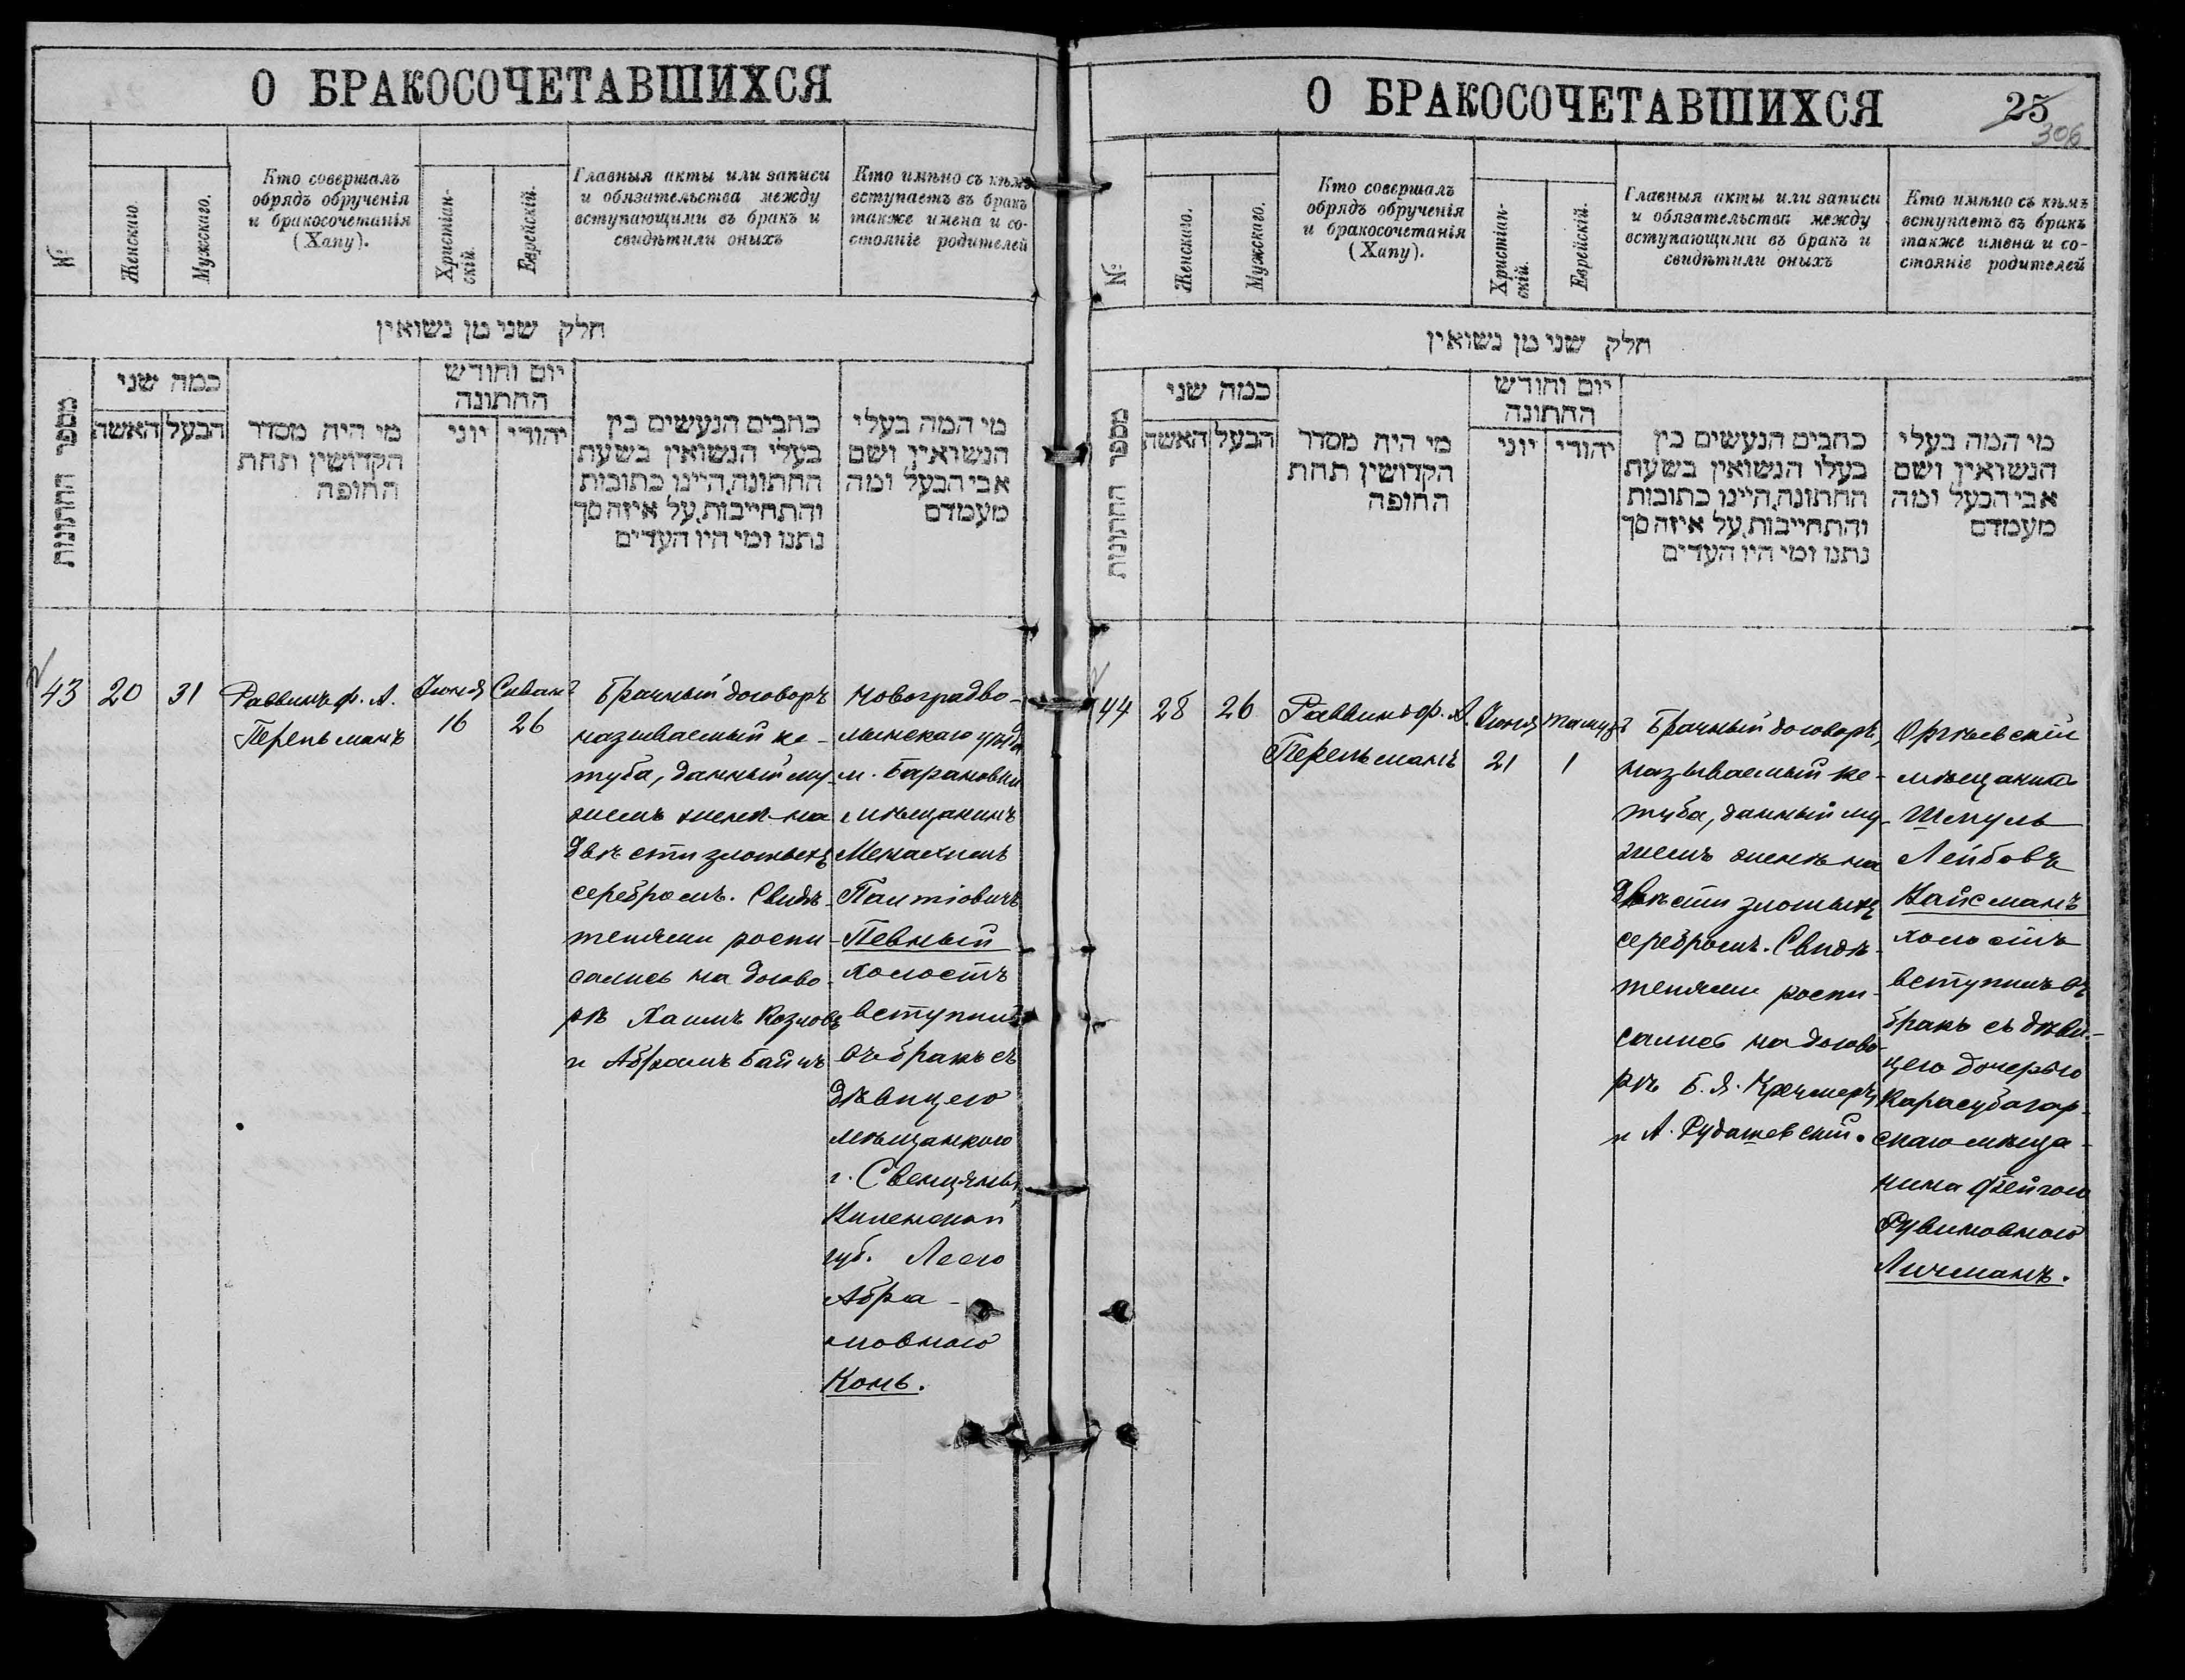 О БРАКОСОЧЕТАВШИХСЯ
№
Женскаго.
Мужскаго.
Кто совершалъ
обрядъ обрученія
и бракосочетанія
(Хапу).
Христіан-
скій.
Еврейскій.
Главныя акты или записи
и обязательства между
вступающими въ бракъ и
свидѣтили оныхъ
Кто имѣно съ кѣмъ
вступаетъ въ бракъ
также имена и со-
стояніе родителей
חלק שני מן נשואין
מספר החתונות
כמה שני
האשה
הבעל
מי היה מסדר
הקדושין תחת
החופה
יום וחודש
החתונה
יוני
יהודי
כתבים הנעשים בין
בעלי הנשואין בשעת
החתונה, היינו כתובות
והתחייבות, על איזה סך
נתנו ומי היו העדים
מי המה בעלי
הנשואין ושם
אבי הבעל ומה
מעמדם
43
20
31
Раввинъ ф. А.
Перельманъ
Іюня
16
Сивань
26
Брачный договоръ
называемый ке-
туба, данный му-
жемъ женѣ на
двѣсти злотыхъ
серебромъ. Свидѣ-
телями роспи-
сались на догово-
рѣ Хаимъ Козловъ
и Абрамъ Байнъ
Новоградво-
лынскаго уѣзда
м. Барановки
мѣщанинъ
Менахимъ
Палтіовичъ
Певный
холостъ
вступилъ
въ бракъ съ
дѣвицею
мѣщанкою
г. Свенцянъ,
Виленской
губ. Леею
Абра-
мовною
Конъ.
О БРАКОСОЧЕТАВШИХСЯ
25
306
№
Женскаго.
Мужскаго.
Кто совершалъ
обрядъ обрученія
и бракосочетанія
(Хапу).
Христіан-
скій.
Еврейскій.
Главныя акты или записи
и обязательства между
вступающими въ бракъ и
свидѣтили оныхъ
Кто имѣно съ кѣмъ
вступаетъ въ бракъ
также имена и со-
стояніе родителей
חלק שני מן נשואין
מספר החתונות
כמה שני
האשה
הבעל
מי היה מסדר
הקדושין תחת
החופה
יום וחודש
החתונה
יוני
יהודי
כתבים הנעשים בין
בעלי הנשואין בשעת
החתונה, היינו כתובות
והתחייבות, על איזה סך
נתנו ומי היו העדים
מי המה בעלי
הנשואין ושם
אבי הבעל ומה
מעמדם
44
28
26
Раввинъ ф. А.
Перельманъ
Іюня
21
Тамузъ
1
Брачный договоръ,
называемый ке-
туба, данный му-
жемъ женѣ на
двѣсти злотыхъ
серебромъ. Свидѣ-
телями роспи-
сались на догово-
рѣ Б. Я. Кречмеръ
и А. Рудашевскій.
Оргѣевскій
мѣщанинъ
Шмуль
Лейбовъ
Вайсманъ
холостъ
вступилъ въ
бракъ съ дѣви-
цею дочерью
Карасубазар-
скаго мѣща-
нина Фейгою
Рувиновною
Личманъ.